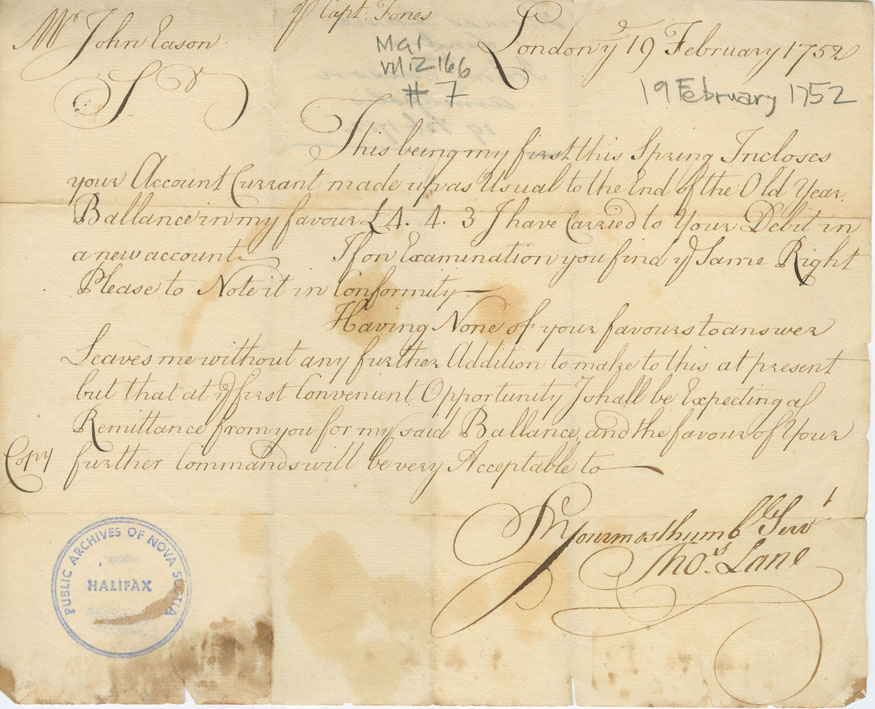 Mr John Eason
⅌ Capt. Jones
MG1
Vol 12 166
# 7
London ye 19 February 1752
19 February 1752
Sr
This being my first this Spring Incloses
your Account Currant made up as Usual to the End of the Old Year
Ballance in my favour £4. 4. 3 I have Carried to Your Debit in
a new account If on Examination you find ye Same Right
Please to Note it in Conformity
Having None of your favours to answer
Leaves me without any further Addition to make to this at present
but that at ye first Convenient Opportunity I shall be Expecting a
Remittance from you for my said Ballance, and the favour of Your
Copy
further Commands will be very Acceptable to
Sr Your most humb Servt
Thos. Lane
PUBLIC ARCHIVES OF NOVA SCOTIA
HALIFAX